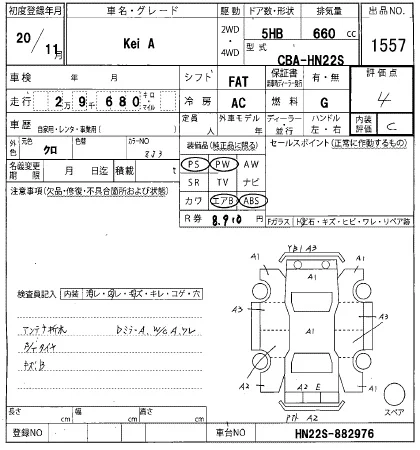 初度登録年月 車名・グレード 駆動 ドア数・形状 排気量 出品NO.
20/11月 Kei A 2WD・4WD 5HB 660 cc 1557
型式 CBA-HN22S
車検 年 月 シフト FAT 保証書 有・無 評価点
走行 2万9千680 キロ・マイル 冷房 AC 燃料 G 4
車歴 自家用・レンタ・事業用( ) 定員 人 外車モデル 年 ディーラー・並行 ハンドル 左・右 内装評価 C
外色 元色 クロ 色替 カラーNO 装備品(純正品に限る) セールスポイント (正常に作動するもの)
名義変更期限 月 日迄 積載 t
PS PW AW
SR TV ナビ
カワ エアB ABS
注意事項(欠品・修復・不具合箇所および状態)
R券 8,910円
Fガラス 飛石・キズ・ヒビ・ワレ・リペア跡
検査員記入 内装
キレ・コゲ・穴
YB1 A3
A1 A1
A3 A3
A1
A1 A1
A2 E
A2
HN22S
スペア
長さ cm 幅 cm 高さ cm
登録NO 車台NO HN22S-882976